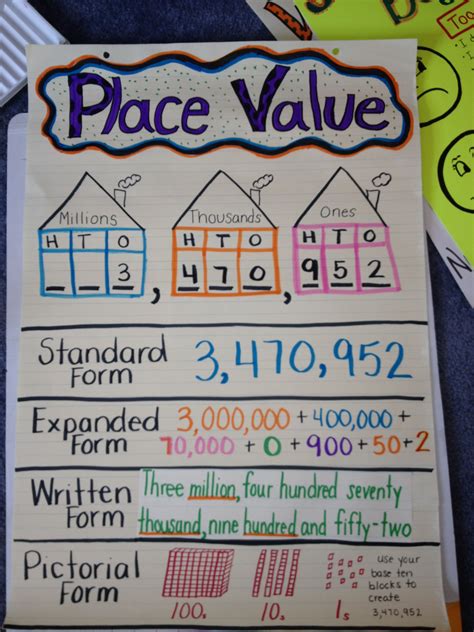 Place Value
Millions
Thousands
Ones
H T O
H T O
H T O
_ _ 3, 4 7 0, 9 5 2
Standard Form
3,470,952
Expanded Form
3,000,000 + 400,000 +
70,000 + 0 + 900 + 50 + 2
Written Form
Three million, four hundred seventy
thousand, nine hundred and fifty-two
Pictorial Form
100s
10s
1s
use your
base ten
blocks to
create
3,470,952
Too